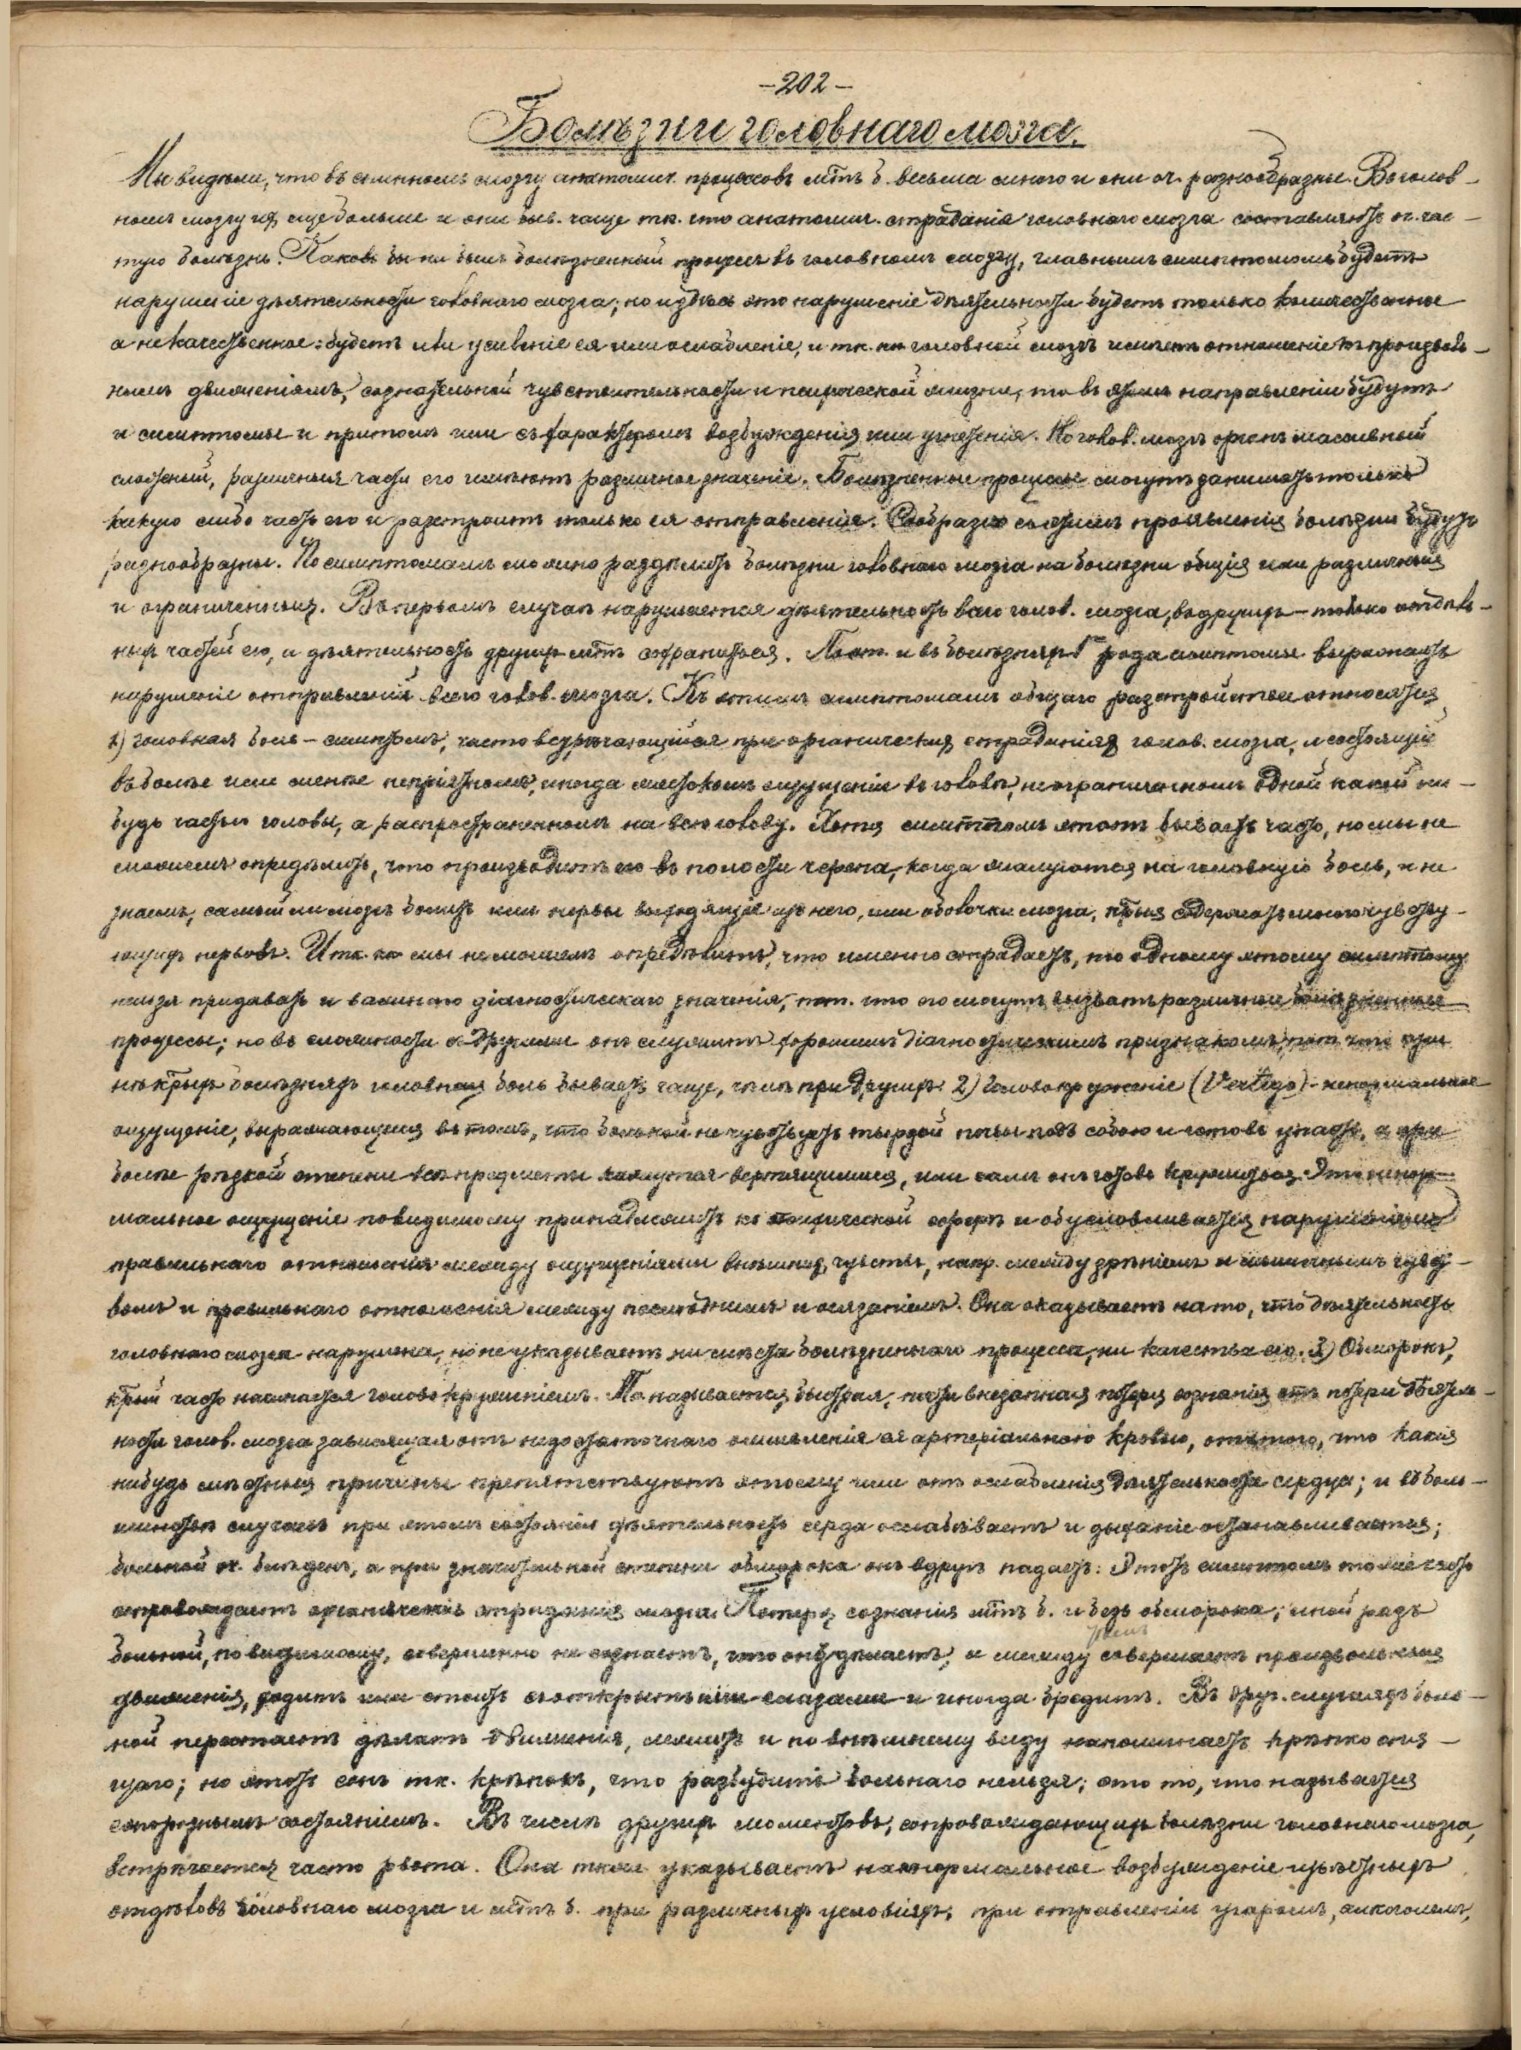 -202-
Болѣзни головнаго мозга.
Мы видѣли, что въ спинномъ мозгу анатомич. процессовъ м্тъ б. весьма много и они оч. разнообразны. Въ голов-
номъ мозгу ихъ еще больше и они быв. чаще тк. что анатомич. страданія головнаго мозга составляютъ оч. час-
тую болѣзнь. Каковъ бы ни былъ болѣзненный процессъ въ головномъ мозгу, главнымъ симптомомъ будетъ
нарушеніе дѣятельности головнаго мозга; но и здѣсь это нарушеніе дѣятельности будетъ только количественное
а не качественное: будетъ или усиленіе ея или ослабленіе, и тк. кк головной мозгъ имѣетъ отношеніе къ произволь-
нымъ движеніямъ, сознательной чувствительности и психической жизни, то въ этомъ направленіи будутъ
и симптомы и притомъ или съ характеромъ возбужденія или угнетенія. Но голов. мозгъ органъ массивный
сложный, различныя части его имѣютъ различное значеніе. Болѣзненные процессы могутъ занимать только
какую либо часть его и разстроитъ только ея отправленія. Сообразно съ этимъ проявленія болѣзни будутъ
разнообразны. По симптомамъ можно раздѣлить болѣзни головнаго мозга на болѣзни общія или различныя
и ограниченныя. Въ первомъ случаѣ нарушается дѣятельность всего голов. мозга, въ другихъ - только отдѣль-
ныхъ частей его, и дѣятельность другихъ м্тъ сохраниться. Пот. и въ болѣзняхъ рода симптомы выражаютъ
нарушеніе отправленій всего голов. мозга. Къ этимъ симптомамъ общаго разстройства относятся
1) головная боль - симптомъ, часто встрѣчающійся при органическихъ страданіяхъ голов. мозга, и состоящій
въ болѣе или менѣе непріятномъ, иногда жестокомъ ощущеніи въ головѣ, неограниченномъ одной какой ни-
будь частью головы, а распространенномъ на всю голову. Хотя симптомъ этотъ бываетъ часто, но мы не
можемъ опредѣлить, что производитъ его въ полости черепа, когда жалуются на головную боль, и не
знаемъ, самый ли мозгъ болитъ или нервы выходящіе изъ него, или оболочки мозга, кътрыя содержатъ много чувству-
ющихъ нервовъ. И тк. кк мы не можемъ опредѣлить, что именно страдаетъ, то одному этому симптому
нельзя придавать и важнаго діагностическаго значенія, пот. что его могутъ вызвать различные болѣзненные
процессы; но въ сложности съ другими онъ служитъ хорошимъ діагностическимъ признакомъ, пот. что при
нѣктрыхъ болѣзняхъ головная боль бываетъ чаще, чѣмъ при другихъ. 2) Головокруженіе (Vertigo) - ненормальное
ощущеніе, выражающееся въ томъ, что больной не чувствуетъ твердой почвы подъ собою и готовъ упасть, а при
болѣе рѣзкой степени всѣ предметы кажутся вертящимися, или самъ онъ готовъ кружиться. Это ненор-
мальное ощущеніе повидимому принадлежитъ къ психической сферѣ и обусловливается нарушеніемъ
правильнаго отношенія между ощущеніями внѣшнихъ чувствъ, напр. между зрѣніемъ и мышечнымъ чувст-
вомъ и правильнаго отношенія между послѣднимъ и осязаніемъ. Она указываетъ на то, что дѣятельность
головнаго мозга нарушена, но не указываетъ ни мѣста болѣзненнаго процесса, ни качества его. 3) Обморокъ,
кътрый часто начинается головокруженіемъ. Тк называется быстрая, почти внезапная потеря сознанія отъ потери дѣятель-
ности голов. мозга зависящая отъ недостаточнаго снабженія его артеріальною кровью, оттого, что какія
нибудь мѣстныя причины препятствуютъ этому или отъ ослабленія дѣятельности сердца; и въ боль-
шинствѣ случаевъ при этомъ состояніи дѣятельность серда ослабѣваетъ и дыханіе останавливается;
больной оч. блѣденъ, а при значительной степени обморока онъ вдругъ падаетъ. Этотъ симптомъ также часто
сопровождаетъ органическія страданія мозга. Потеря сознанія м্тъ б. и безъ обморока; иной разъ
больной, повидимому, совершенно не сознаетъ, что онъ дѣлаетъ, а между тѣмъ совершаетъ произвольныя
движенія, ходитъ или стоитъ съ открытыми глазами и иногда бредитъ. Въ друг. случаяхъ боль-
ной перестаетъ дѣлать движенія, лежитъ и по внѣшнему виду напоминаетъ крѣпко спя-
щаго; но этотъ сонъ тк. крѣпокъ, что разбудить больнаго нельзя; это то, что называется
сопорознымъ состояніемъ. Въ числѣ другихъ моментовъ, сопровождающихъ болѣзни головнаго мозга,
встрѣчается часто рвота. Она также указываетъ на ненормальное возбужденіе извѣстныхъ
отдѣловъ головнаго мозга и м্тъ б. при различныхъ условіяхъ: при отравленіи угаромъ, алкоголемъ,